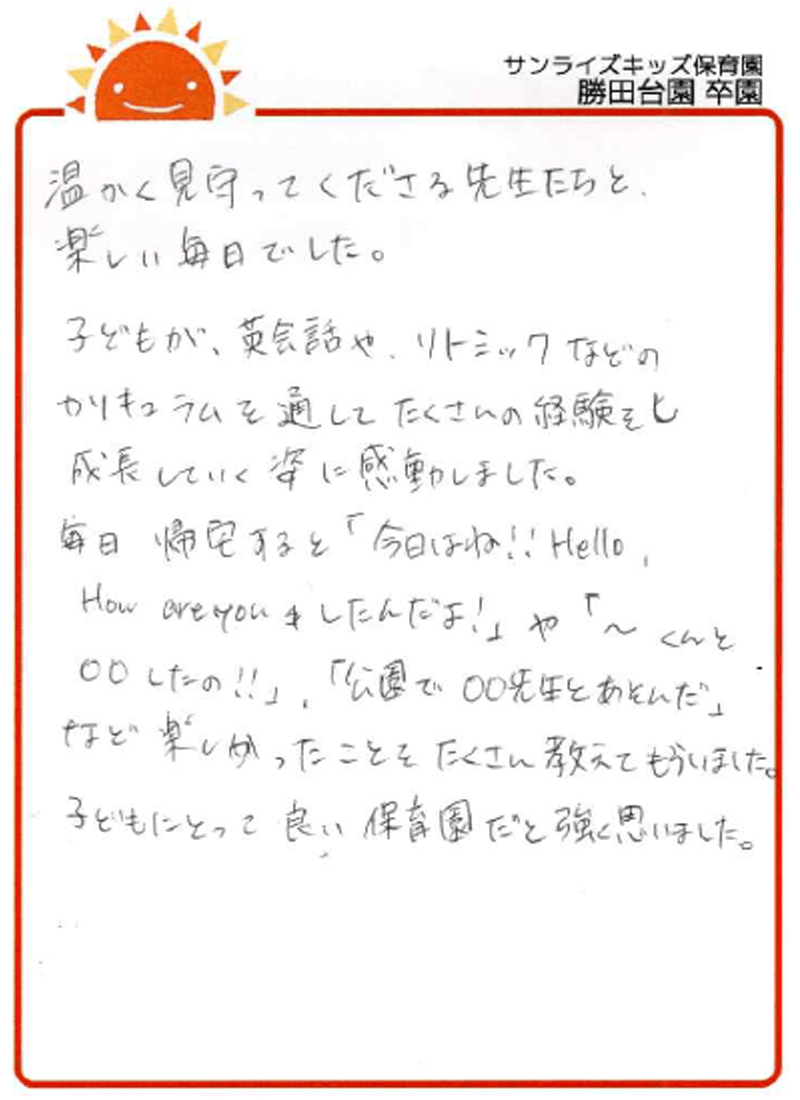 サンライズキッズ保育園
勝田台園 卒園
温かく見守ってくださる先生たちと、
楽しい毎日でした。
子どもが、英会話や、リトミックなどの
カリキュラムを通してたくさんの経験をし
成長していく姿に感動しました。
毎日 帰宅すると「今日はね!! Hello,
How are youをしたんだよ!」や「~くんと
〇〇したの!!」、「公園で〇〇先生とあそんだ」
など楽しかったことをたくさん教えてもらいました。
子どもにとって良い保育園だと強く思いました。